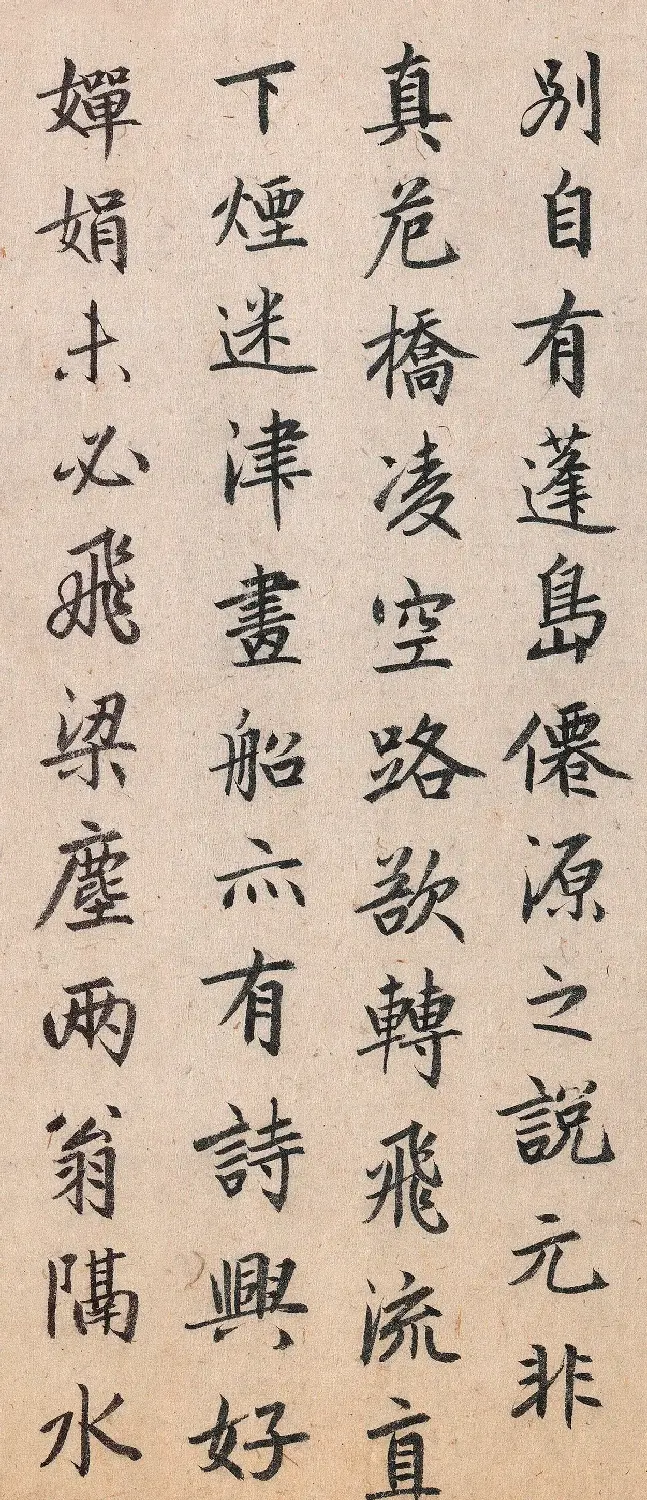 別自有蓬島僊源之說元非
真危橋凌空路欲轉飛流直
下煙迷津畫船亦有詩興好
嬋娟未必飛梁塵兩翁隔水